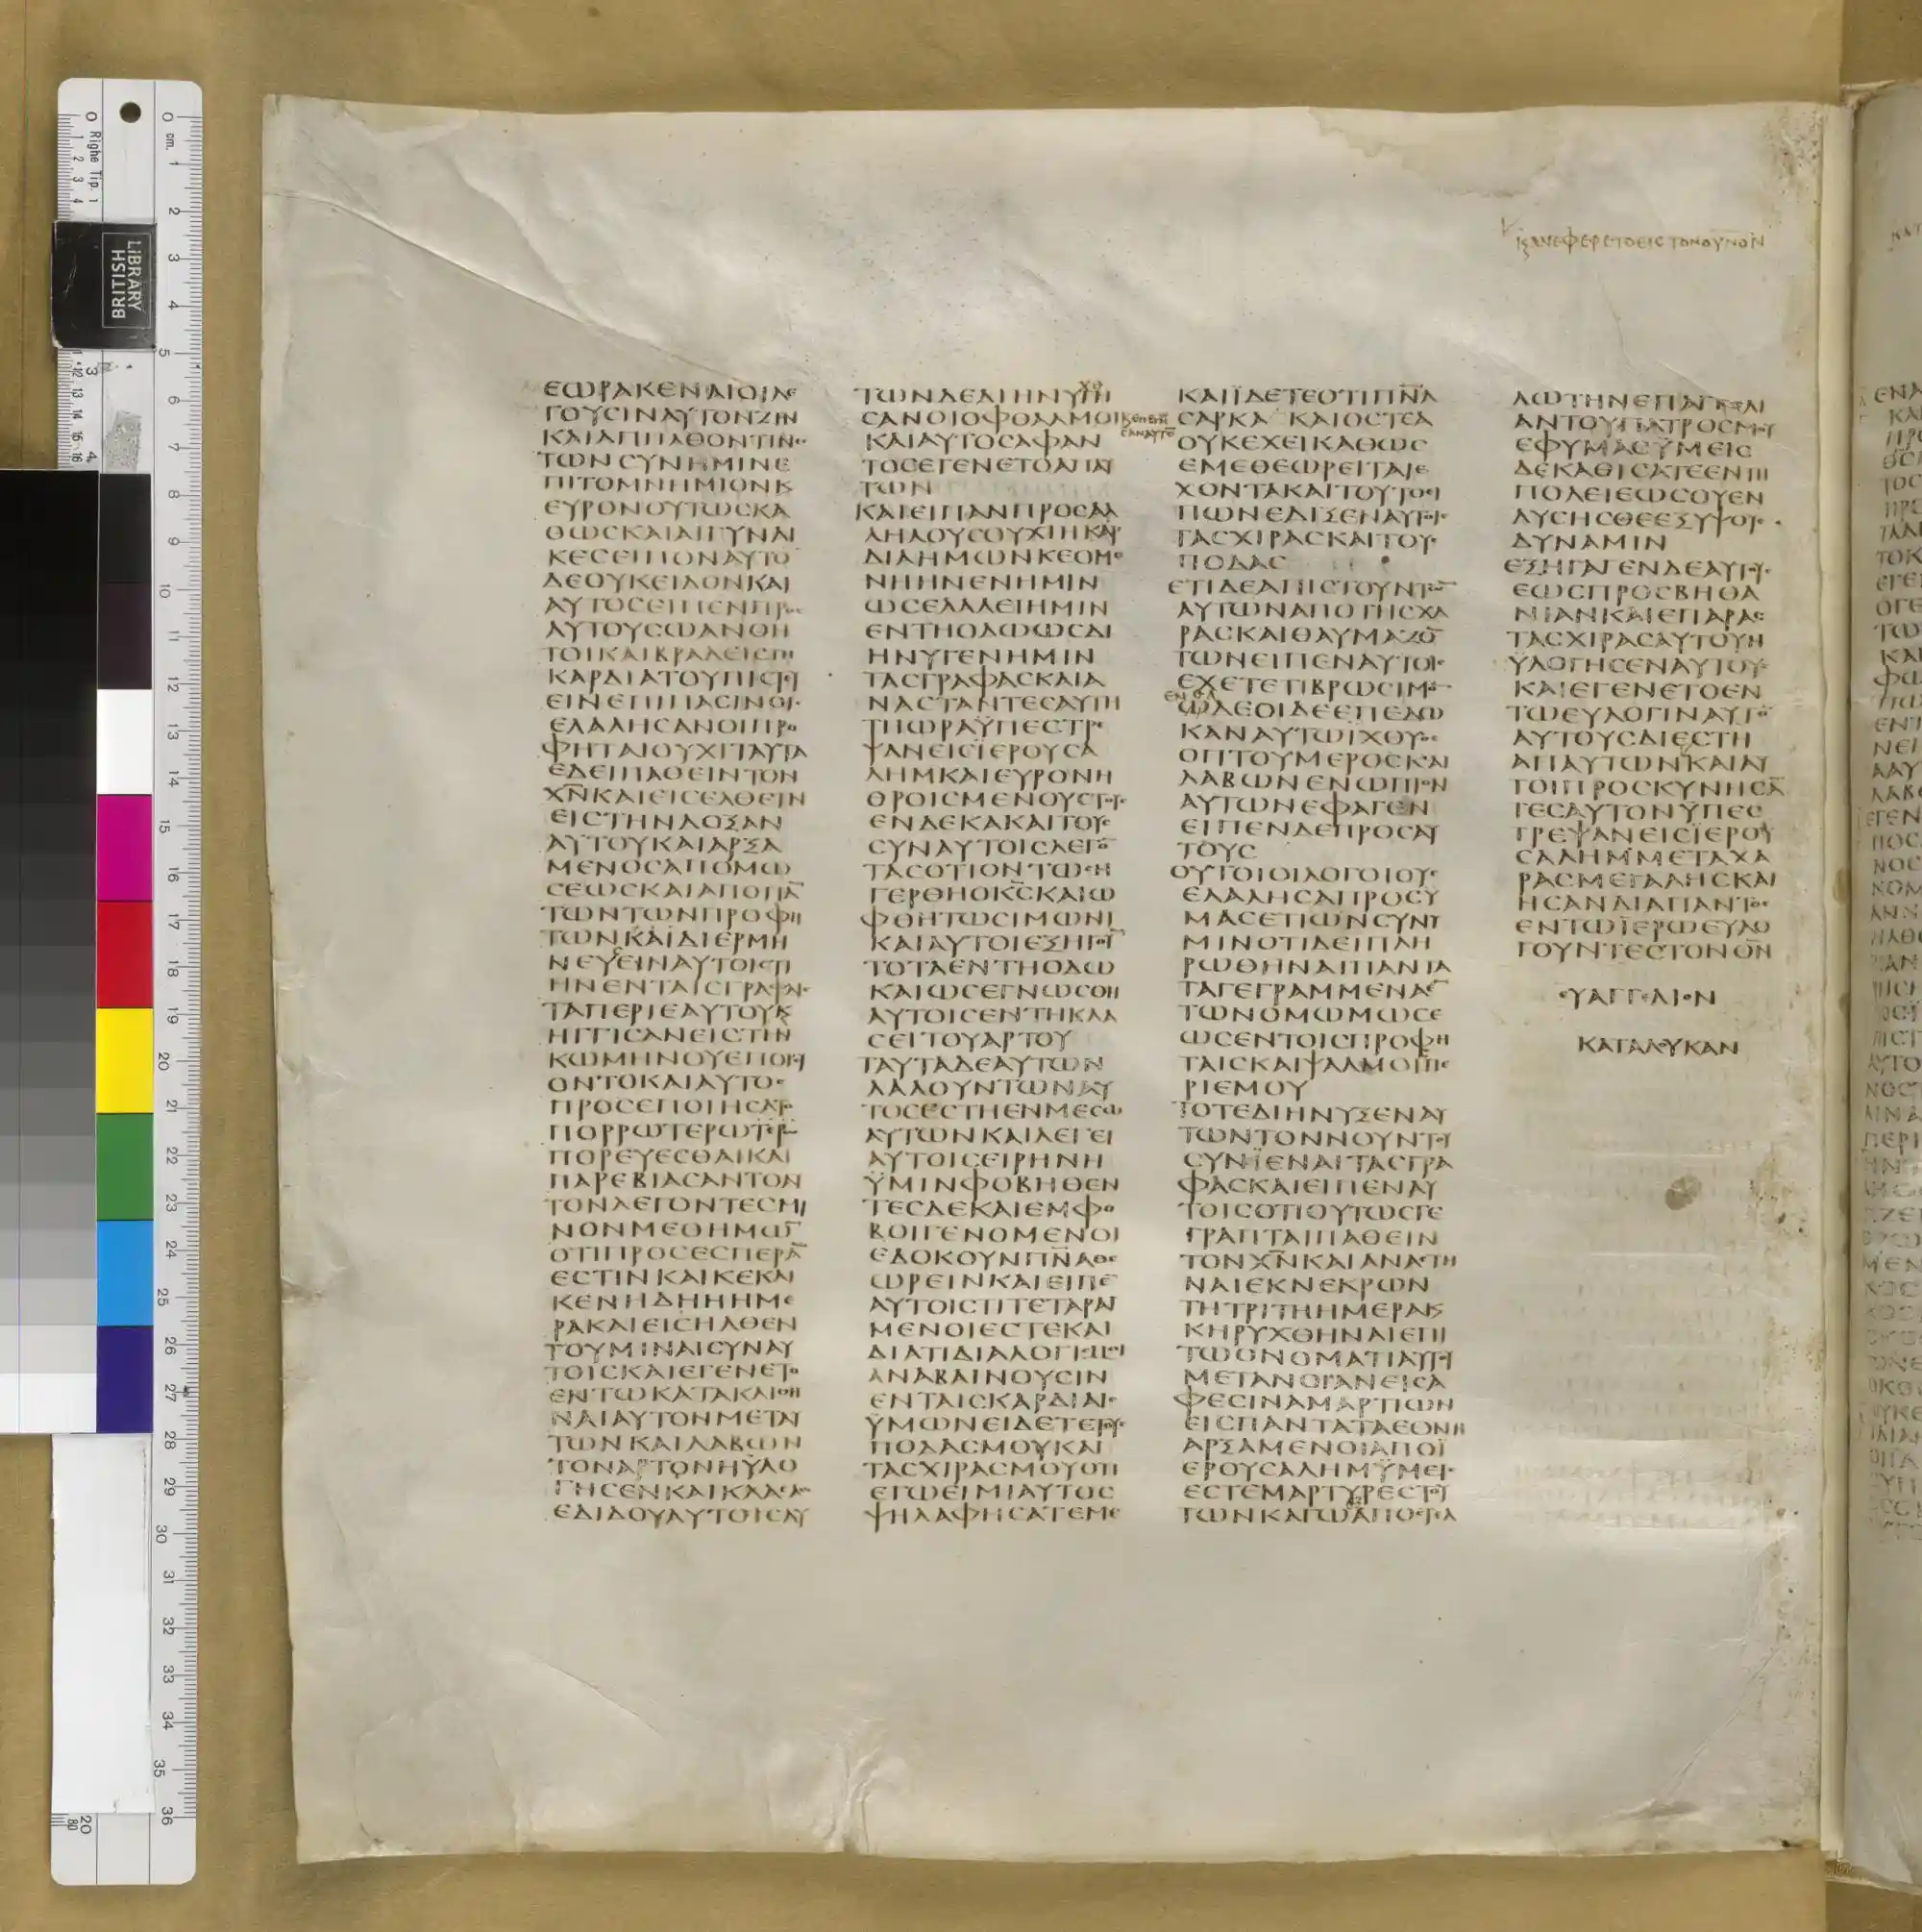 κ̣ ανεφερετο εις τον ουνον
ΕΩΡΑΚΕΝΑΙΟΙΛΕ
ΓΟΥΣΙΝΑΥΤΟΝΖΗΝ
ΚΑΙΑΠΗΛΘΟΝΤΙΝΕΣ
ΤΩΝΣΥΝΗΜΙΝΕ
ΠΙΤΟΜΝΗΜΙΟΝΚ
ΕΥΡΟΝΟΥΤΩΣΚΑ
ΘΩΣΚΑΙΑΙΓΥΝΑΙ
ΚΕΣΕΙΠΟΝΑΥΤΟ
ΔΕΟΥΚΕΙΔΟΝΚΑΙ
ΑΥΤΟΣΕΙΠΕΝΠΡΟΣ
ΑΥΤΟΥΣΩΑΝΟΗ
ΤΟΙΚΑΙΒΡΑΔΕΙΣΤΗ
ΚΑΡΔΙΑΤΟΥΠΙΣΤΕΥ
ΕΙΝΕΠΙΠΑΣΙΝΟΙΣ
ΕΛΑΛΗΣΑΝΟΙΠΡΟ
ΦΗΤΑΙΟΥΧΙΤΑΥΤΑ
ΕΔΕΙΠΑΘΕΙΝΤΟΝ
ΧΝ̅ΚΑΙΕΙΣΕΛΘΕΙΝ
ΕΙΣΤΗΝΔΟΞΑΝ
ΑΥΤΟΥΚΑΙΑΡΞΑ
ΜΕΝΟΣΑΠΟΜΩ
ΣΕΩΣΚΑΙΑΠΟΠΑ̅
ΤΩΝΤΩΝΠΡΟΦΗ
ΤΩΝΚΑΙΔΙΕΡΜΗ
ΝΕΥΕΙΝΑΥΤΟΙΣΤΙ
ΗΝΕΝΤΑΙΣΓΡΑΦΑΙΣ
ΤΑΠΕΡΙΕΑΥΤΟΥΚ
ΗΓΓΙΣΑΝΕΙΣΤΗΝ
ΚΩΜΗΝΟΥΕΠΟΡΕΥ
ΟΝΤΟΚΑΙΑΥΤΟΣ
ΠΡΟΣΕΠΟΙΗΣΑΤΟ
ΠΟΡΡΩΤΕΡΩΤΕΡΩ
ΠΟΡΕΥΕΣΘΑΙΚΑΙ
ΠΑΡΕΒΙΑΣΑΝΤΟΝ
ΤΟΝΛΕΓΟΝΤΕΣΜΙ
ΝΟΝΜΕΘΗΜΩ̅
ΟΤΙΠΡΟΣΕΣΠΕΡΑ̅
ΕΣΤΙΝΚΑΙΚΕΚΛΙ
ΚΕΝΗΔΗΗΗΜΕ
ΡΑΚΑΙΕΙΣΗΛΘΕΝ
ΤΟΥΜΙΝΑΙΣΥΝΑΥ
ΤΟΙΣΚΑΙΕΓΕΝΕΤΟ
ΕΝΤΩΚΑΤΑΚΛΙΘΗ
ΝΑΙΑΥΤΟΝΜΕΤΑΥ
ΤΩΝΚΑΙΛΑΒΩΝ
ΤΟΝΑΡΤΟΝΗΫΛΟ
ΓΗΣΕΝΚΑΙΚΛΑΣΑΣ
ΕΔΙΔΟΥΑΥΤΟΙΣΑΥ
ΤΩΝΔΕΔΙΗΝΥΓΗ
ΧΘΗ
ΣΑΝΟΙΟΦΘΑΛΜΟΙ
ΚΑΙΑΥΤΟΣΑΦΑΝ
ΤΟΣΕΓΕΝΕΤΟΑΠΑΥ
ΤΩΝ
ΚΑΙΕΙΠΑΝΠΡΟΣΑΛ
ΛΗΛΟΥΣΟΥΧΙΗΚΑΡ
ΔΙΑΗΜΩΝΚΕΟΜΕ
ΝΗΗΝΕΝΗΜΙΝ
ΩΣΕΛΑΛΕΙΗΜΙΝ
ΕΝΤΗΟΔΩΩΣΔΙ
ΗΝΥΓΕΝΗΜΙΝ
ΤΑΣΓΡΑΦΑΣΚΑΙΑ
ΝΑΣΤΑΝΤΕΣΑΥΤΗ
ΤΗΩΡΑΫΠΕΣΤΡΕ
ΨΑΝΕΙΣΪΕΡΟΥΣΑ
ΛΗΜΚΑΙΕΥΡΟΝΗ
ΘΡΟΙΣΜΕΝΟΥΣΤΟΥΣ
ΕΝΔΕΚΑΚΑΙΤΟΥΣ
ΣΥΝΑΥΤΟΙΣΛΕΓΟ̅
ΤΑΣΟΤΙΟΝΤΩΣΗ
ΓΕΡΘΗΟΚΣ̅ΚΑΙΩ
ΦΘΗΤΩΣΙΜΩΝΙ
ΚΑΙΑΥΤΟΙΕΞΗΓΟΥ̅
ΤΟΤΑΕΝΤΗΟΔΩ
ΚΑΙΩΣΕΓΝΩΣΘΗ
ΑΥΤΟΙΣΕΝΤΗΚΛΑ
ΣΕΙΤΟΥΑΡΤΟΥ
ΤΑΥΤΑΔΕΑΥΤΩΝ
ΛΑΛΟΥΝΤΩΝΑΥ
ΤΟΣΕΣΤΗΕΝΜΕΣΩ
ΑΥΤΩΝΚΑΙΛΕΓΕΙ
ΑΥΤΟΙΣΕΙΡΗΝΗ
ΫΜΙΝΦΟΒΗΘΕΝ
ΤΕΣΔΕΚΑΙΕΜΦΟ
ΒΟΙΓΕΝΟΜΕΝΟΙ
ΕΔΟΚΟΥΝΠΝΑ̅ΘΕ
ΩΡΕΙΝΚΑΙΕΙΠΕ̅
ΑΥΤΟΙΣΤΙΤΕΤΑΡΑΓ
ΜΕΝΟΙΕΣΤΕΚΑΙ
ΔΙΑΤΙΔΙΑΛΟΓΙΣΜΟΙ
ΑΝΑΒΑΙΝΟΥΣΙΝ
ΕΝΤΑΙΣΚΑΡΔΙΑΙΣ
ΫΜΩΝΕΙΔΕΤΕΤΟΥΣ
ΠΟΔΑΣΜΟΥΚΑΙ
ΤΑΣΧΙΡΑΣΜΟΥΟΤΙ
ΕΓΩΕΙΜΙΑΥΤΟΣ
ΨΗΛΑΦΗΣΑΤΕΜΕ
ΚΑΙΪΔΕΤΕΟΤΙΠΝΑ̅
ΣΑΡΚΑ ΚΑΙΟΣΤΕΑ
ΟΥΚΕΧΕΙΚΑΘΩΣ
ΕΜΕΘΕΩΡΕΙΤΑΙΕ
ΧΟΝΤΑΚΑΙΤΟΥΤΟΕΙ
ΠΩΝΕΔΙΞΕΝΑΥΤΟΙΣ
ΤΑΣΧΙΡΑΣΚΑΙΤΟΥΣ
ΠΟΔΑΣ
ΕΤΙΔΕΑΠΙΣΤΟΥΝΤΩ̅
ΑΥΤΩΝΑΠΟΤΗΣΧΑ
ΡΑΣΚΑΙΘΑΥΜΑΖΟ̅
ΤΩΝΕΙΠΕΝΑΥΤΟΙΣ
ΕΧΕΤΕΤΙΒΡΩΣΙΜΟ̅
ΕΝΘΑ
ΩΔΕΟΙΔΕΕΠΕΔΩ
ΚΑΝΑΥΤΩΪΧΘΥΟΣ
ΟΠΤΟΥΜΕΡΟΣΚΑΙ
ΛΑΒΩΝΕΝΩΠΙΟΝ
ΑΥΤΩΝΕΦΑΓΕΝ
ΕΙΠΕΝΔΕΠΡΟΣΑΥ
ΤΟΥΣ
ΟΥΤΟΙΟΙΛΟΓΟΙΟΥΣ
ΕΛΑΛΗΣΑΠΡΟΣΥ
ΜΑΣΕΤΙΩΝΣΥΝΥ
ΜΙΝΟΤΙΔΕΙΠΛΗ
ΡΩΘΗΝΑΙΠΑΝΤΑ
ΤΑΓΕΓΡΑΜΜΕΝΑΕ̅
ΤΩΝΟΜΩΜΩΣΕ
ΩΣΕΝΤΟΙΣΠΡΟΦΗ
ΤΑΙΣΚΑΙΨΑΛΜΟΙΣΠΕ
ΡΙΕΜΟΥ
ΤΟΤΕΔΙΗΝΥΞΕΝΑΥ
ΤΩΝΤΟΝΝΟΥΝΤΟΥ
ΣΥΝΪΕΝΑΙΤΑΣΓΡΑ
ΦΑΣΚΑΙΕΙΠΕΝΑΥ
ΤΟΙΣΟΤΙΟΥΤΩΣΓΕ
ΓΡΑΠΤΑΙΠΑΘΕΙΝ
ΤΟΝΧΝ̅ΚΑΙΑΝΑΣΤΗ
ΝΑΙΕΚΝΕΚΡΩΝ
ΤΗΤΡΙΤΗΗΜΕΡΑΚ
ΚΗΡΥΧΘΗΝΑΙΕΠΙ
ΤΩΟΝΟΜΑΤΙΑΥΤΟΥ
ΜΕΤΑΝΟΙΑΝΕΙΣΑ
ΦΕΣΙΝΑΜΑΡΤΙΩΝ
ΕΙΣΠΑΝΤΑΤΑΕΘΝΗ
ΑΡΞΑΜΕΝΟΙΑΠΟΪ
ΕΡΟΥΣΑΛΗΜΫΜΕΙΣ
ΕΣΤΕΜΑΡΤΥΡΕΣΤΟΥ
ΤΩΝΚΑΓΩΑΠΟΣΤΕΛ
ΛΩΤΗΝΕΠΑΓΓΕΛΙ
ΑΝΤΟΥΠΑΤΡΟΣΜΟΥ
ΕΦΥΜΑΣΫΜΕΙΣ
ΔΕΚΑΘΙΣΑΤΕΕΝΤΗ
ΠΟΛΕΙΕΩΣΟΥΕΝ
ΔΥΣΗΣΘΕΕΞΥΨΟΥΣ
ΔΥΝΑΜΙΝ
ΕΞΗΓΑΓΕΝΔΕΑΥΤΟΥΣ
ΕΩΣΠΡΟΣΒΗΘΑ
ΝΙΑΝΚΑΙΕΠΑΡΑΣ
ΤΑΣΧΙΡΑΣΑΥΤΟΥΗ
ΫΛΟΓΗΣΕΝΑΥΤΟΥΣ
ΚΑΙΕΓΕΝΕΤΟΕΝ
ΤΩΕΥΛΟΓΙΝΑΥΤΟ̅
ΑΥΤΟΥΣΔΙΕΣΤΗ
ΑΠΑΥΤΩΝΚΑΙΑΥ
ΤΟΙΠΡΟΣΚΥΝΗΣΑ̅
ΤΕΣΑΥΤΟΝΫΠΕΣ
ΤΡΕΨΑΝΕΙΣΪΕΡΟΥ
ΣΑΛΗΜΜΕΤΑΧΑ
ΡΑΣΜΕΓΑΛΗΣΚΑΙ
ΗΣΑΝΔΙΑΠΑΝΤΟΣ
ΕΝΤΩΪΕΡΩΕΥΛΟ
ΓΟΥΝΤΕΣΤΟΝΘΝ̅
ΕΥΑΓΓΕΛΙΟΝ
ΚΑΤΑΛΟΥΚΑΝ
LIBRARY
BRITISH
Righe Tip. 1
cm.